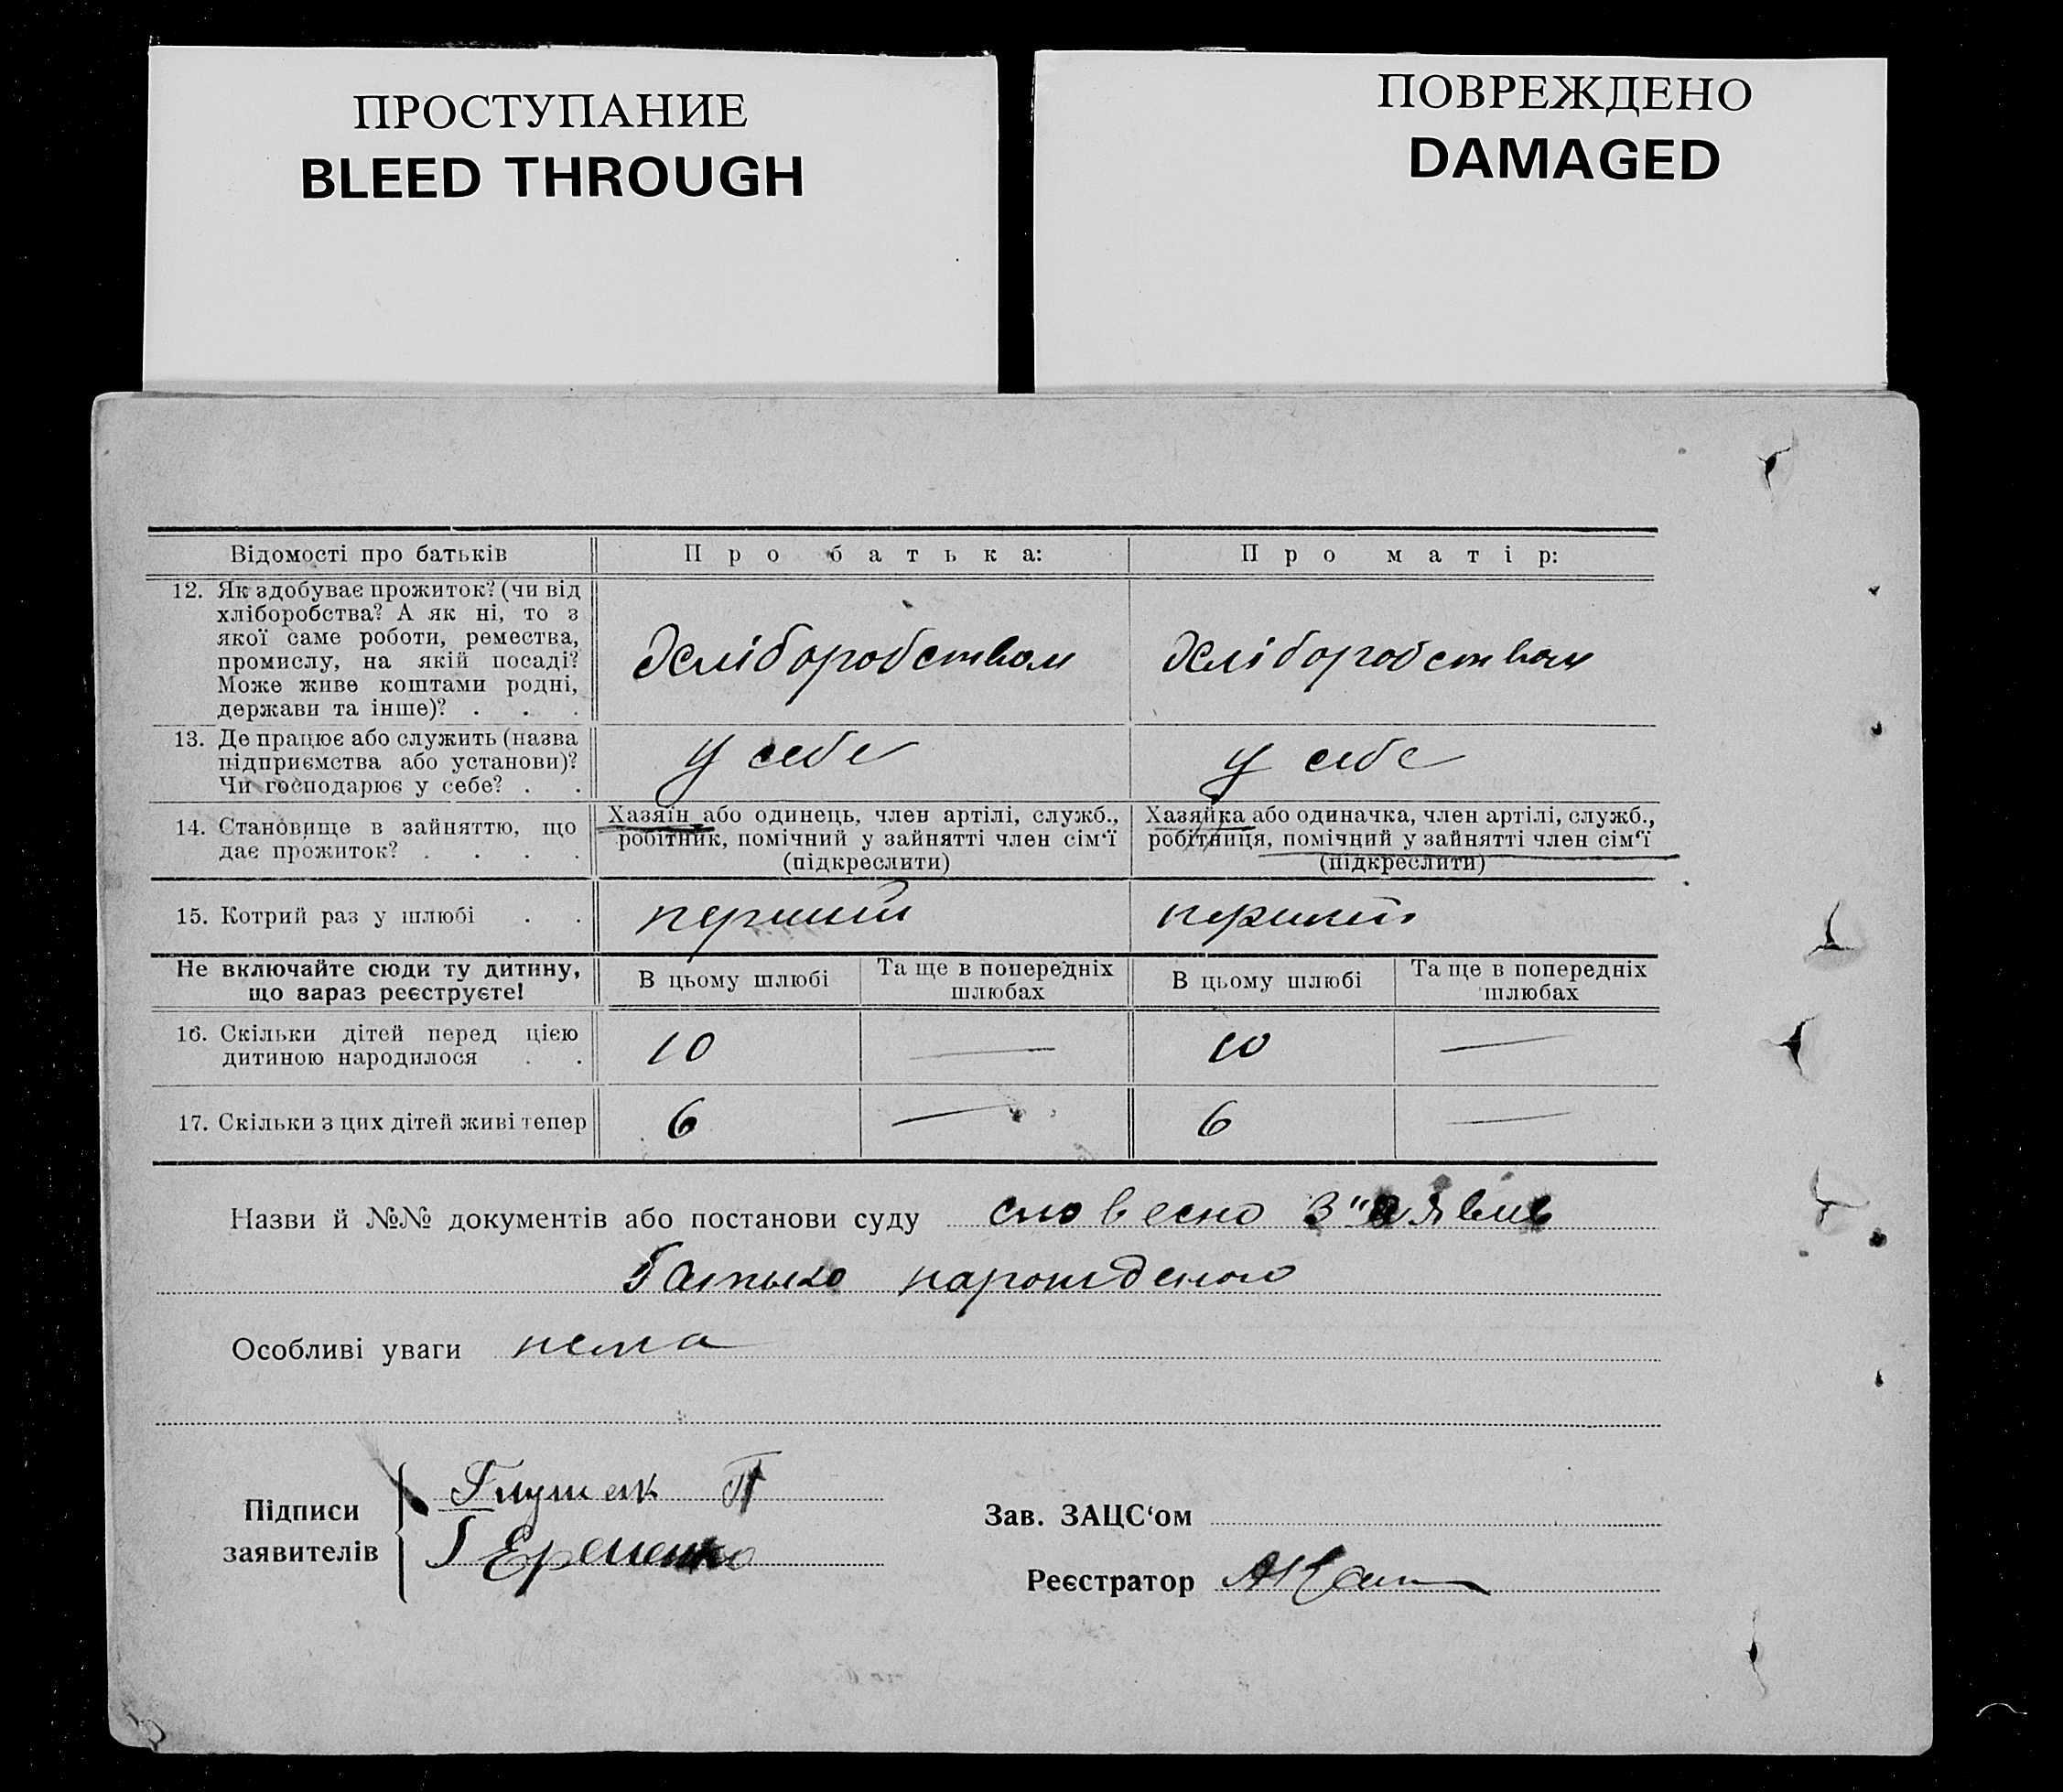 ПРОСТУПАНИЕ
BLEED THROUGH
ПОВРЕЖДЕНО
DAMAGED
Відомості про батьків
Про батька:
Про матір:
12. Як здобуває прожиток? (чи від
хліборобства? А як ні, то з
якої саме роботи, ремества,
промислу, на якій посаді?
Може живе коштами родні,
держави та інше)? . . .
Хліборобством
Хліборобством
13. Де працює або служить (назва
підприємства або установи)?
Чи господарює у себе? . .
у себе
у себе
14. Становище в зайняттю, що
дає прожиток? . . . .
Хазяїн або одинець, член артілі, служб.,
робітник, помічний у зайнятті член сім‘ї
(підкреслити)
Хазяйка або одиначка, член артілі, служб.,
робітниця, помічний у зайнятті член сім‘ї
(підкреслити)
15. Котрий раз у шлюбі . .
перший
перший
Не включайте сюди ту дитину,
що зараз реєструєте!
В цьому шлюбі
Та ще в попередніх
шлюбах
В цьому шлюбі
Та ще в попередніх
шлюбах
16. Скільки дітей перед цією
дитиною народилося . .
10 —
10 —
17. Скільки з цих дітей живі тепер
6 —
6 —
Назви й №№ документів або постанови суду словесно з"аявив
батько нарожденого
Особливі уваги нема
Підписи
заявителів
П
Еременко
Зав. ЗАЦС‘ом
Реєстратор